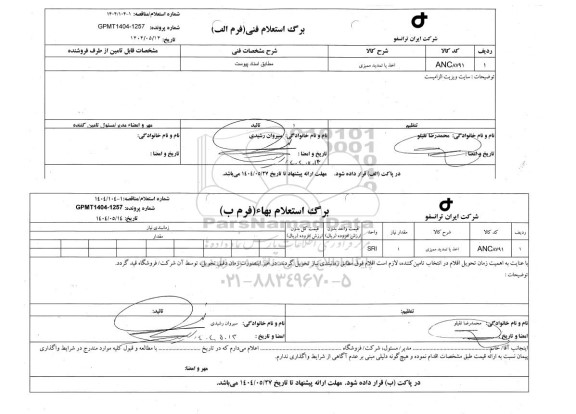 شماره استعلام/مناقصه: ۱۴۰۴/۱۰۴۰۱
شماره پرونده: GPMT1404-1257
تاریخ: ۱۴۰۴/۰۵/۱۳
برگ استعلام فنی(فرم الف)
شرکت ایران ترانسفو
ردیف کد کالا شرح کالا شرح مشخصات فنی مشخصات قابل تامین از طرف فروشنده
۱ ANC۸۷۹۱ اخذ یا تمدید ممیزی مطابق اسناد پیوست
توضیحات: سایت ویزیت الزامیست
تنظیم تائید مهر و امضاء مدیر/مسئول تامین کننده
نام و نام خانوادگی: محمدرضا تقیلو نام و نام خانوادگی: سیروان رشیدی نام و نام خانوادگی:
تاریخ و امضا: تاریخ و امضا: تاریخ و امضا:
در پاکت (الف) قرار داده شود. مهلت ارائه پیشنهاد تا تاریخ ۱۴۰۴/۰۵/۲۷ می‌باشد.
شماره استعلام/مناقصه: ۱۴۰۴/۱۰۴۰۱
شماره پرونده: GPMT1404-1257
تاریخ: ۱۴۰۴/۰۵/۱۴
برگ استعلام بهاء(فرم ب)
شرکت ایران ترانسفو
ردیف کد کالا شرح کالا مقدار نیاز واحد قیمت واحد بدون ارزش افزوده (ریال) قیمت کل بدون ارزش افزوده (ریال) زمانبندی نیاز
مقدار
۱ ANC۸۷۹۱ اخذ یا تمدید ممیزی ۱ SRI
با عنایت به اهمیت زمان تحویل اقلام در انتخاب تامین کننده لازم است اقلام فوق مطابق زمانبندی نیاز تحویل گردند. در غیر اینصورت زمان دقیق تحویل، توسط آن شرکت/فروشگاه قید گردد.
توضیحات:
ParsNamadData
۰۲۱-۸۸۳۴۹۶۷۰-۵
تنظیم: تائید:
نام و نام خانوادگی: محمدرضا تقیلو نام و نام خانوادگی: سیروان رشیدی
امضا و تاریخ: امضا و تاریخ: ۱۴۰۴.۵.۱۳
اینجانب آقا/خانم مدیر/مسئول، شرکت/فروشگاه اعلام می‌دارم که در تاریخ با مطالعه و قبول کلیه موارد مندرج در شرایط واگذاری
پیمان نسبت به ارائه قیمت طبق مشخصات اقدام نموده و هیچ‌گونه دلیلی مبنی بر عدم آگاهی از شرایط واگذاری ندارم.
مهر و امضا:
در پاکت (ب) قرار داده شود. مهلت ارائه پیشنهاد تا تاریخ ۱۴۰۴/۰۵/۲۷ می‌باشد.